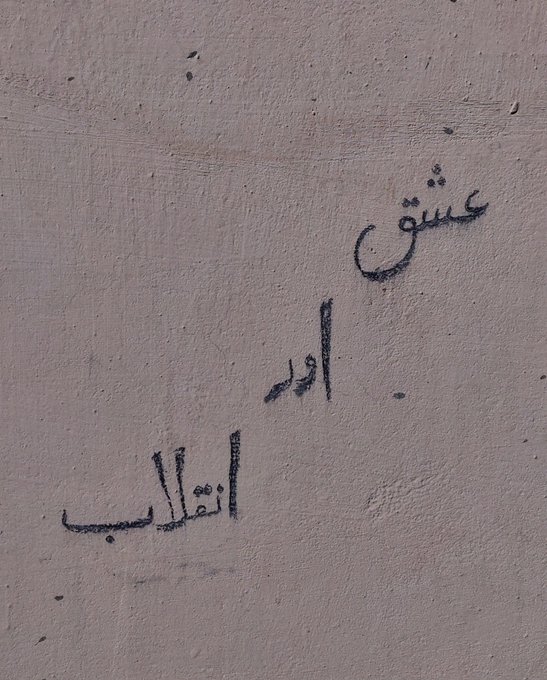 عشق
اور
انقلاب